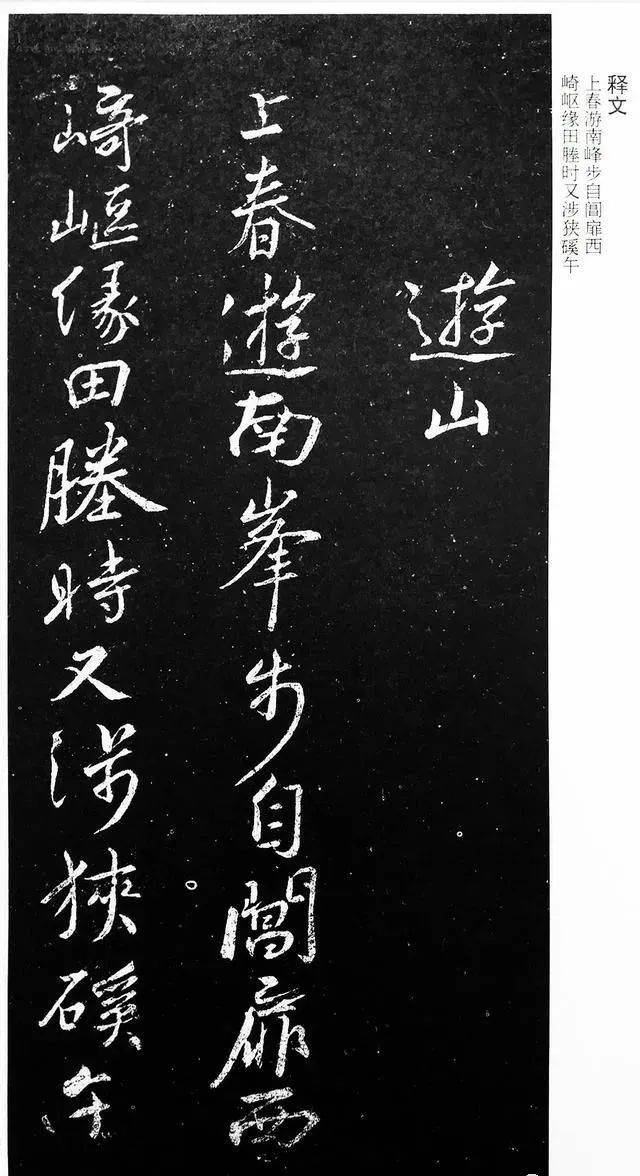 释文
上春游南峰步自阊扉西
崎岖缘田塍时又涉狭磎午
遊山
上春遊南峯步自閶扉西
崎嶇緣田塍時又涉狹磎午